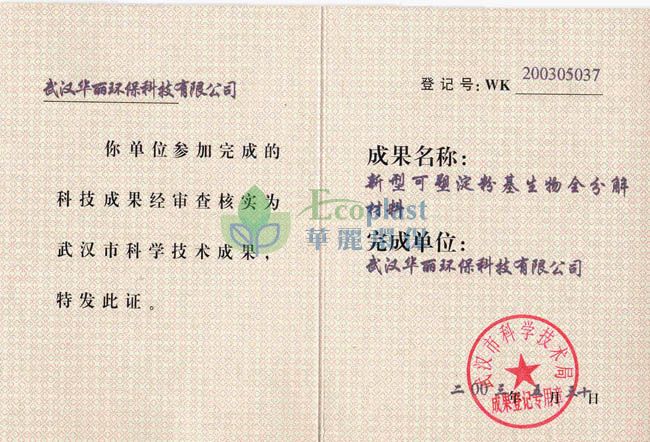 武汉华丽环保科技有限公司
你单位参加完成的
科技成果经审查核实为
武汉市科学技术成果，
特发此证。
登记号：WK 200305037
成果名称：
新型可塑淀粉基生物全分解
材料
完成单位：
武汉华丽环保科技有限公司
武汉市科学技术局
成果登记专用章
二00三年五月三十日
Ecoplast
華麗環保